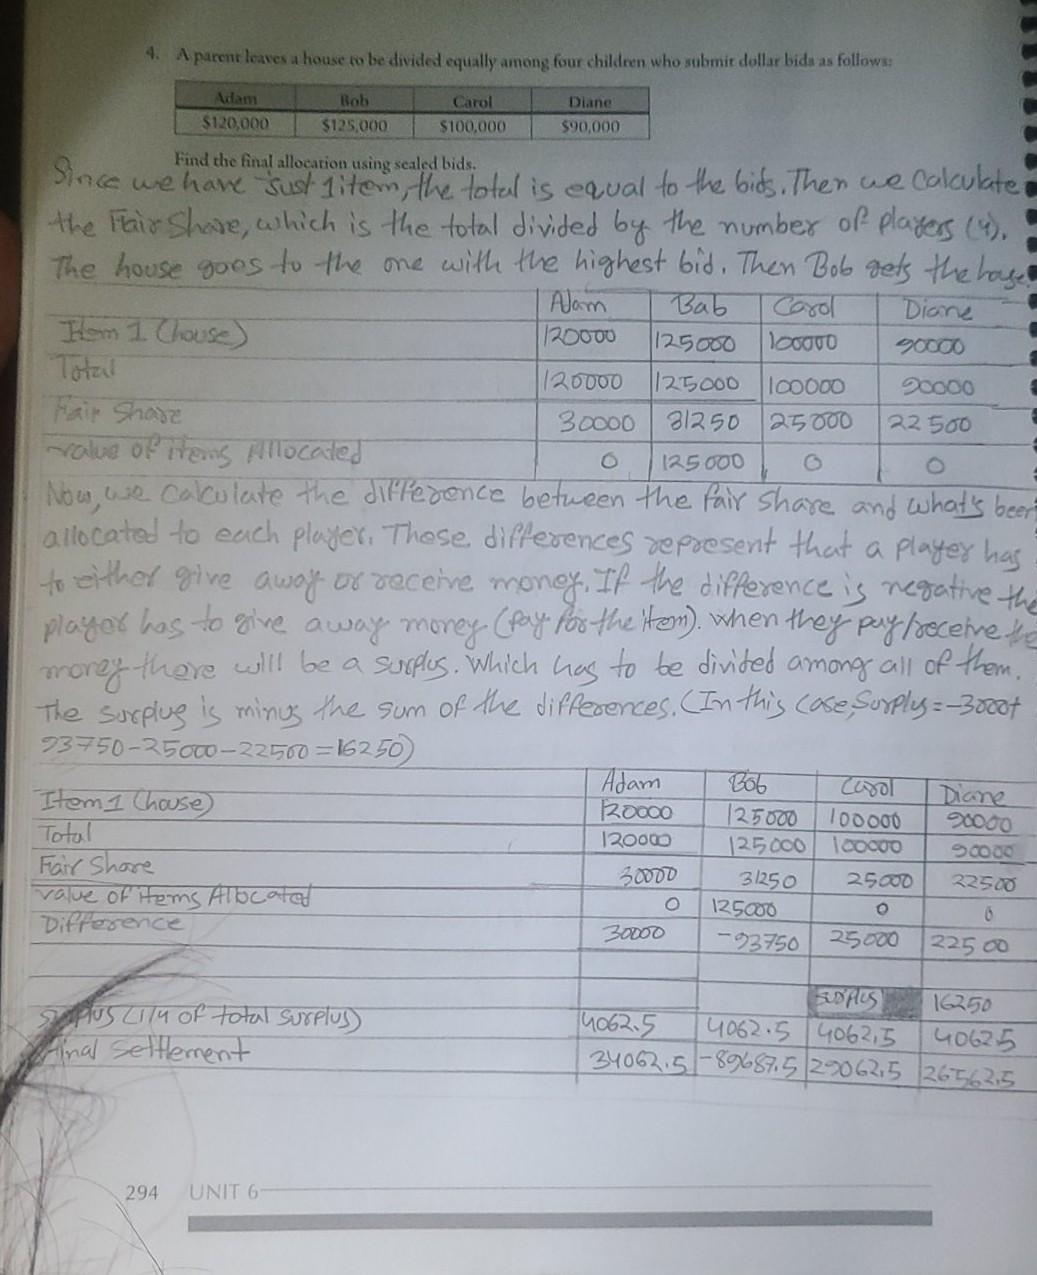 4. A parent leaves a house to be divided equally among four children who submit dollar bids as follows:
Adam Bob Carol Diane
$120,000 $125,000 $100,000 $90,000
Find the final allocation using sealed bids.
Since we have Just 1 item, the total is equal to the bids. Then we calculate
the Fair Share, which is the total divided by the number of players (4).
The house goes to the one with the highest bid. Then Bob gets the house
Adam Bab Carol Diane
Item 1 (house) 120000 125000 100000 90000
Total 120000 125000 100000 90000
Fair Share 30000 31250 25000 22500
value of items Allocated 0 125000 0 0
Now, we calculate the difference between the fair share and what's been
allocated to each player. These differences represent that a player has
to either give away or receive money. If the difference is negative the
player has to give away money (pay for the item). when they pay/receive the
money there will be a surplus. Which has to be divided among all of them.
The surplus is minus the sum of the differences. (In this case, Surplus = -30000+
93750-25000-22500 = 16250)
Adam Bob Carol Diane
Item 1 (house) 120000 125000 100000 90000
Total 120000 125000 100000 90000
Fair Share 30000 31250 25000 22500
value of items Allocated 0 125000 0 0
Difference 30000 -93750 25000 22500
surplus 16250
surplus (1/4 of total surplus) 4062.5 4062.5 4062.5 4062.5
Final Settlement 34062.5 -89687.5 29062.5 26562.5
294 UNIT 6